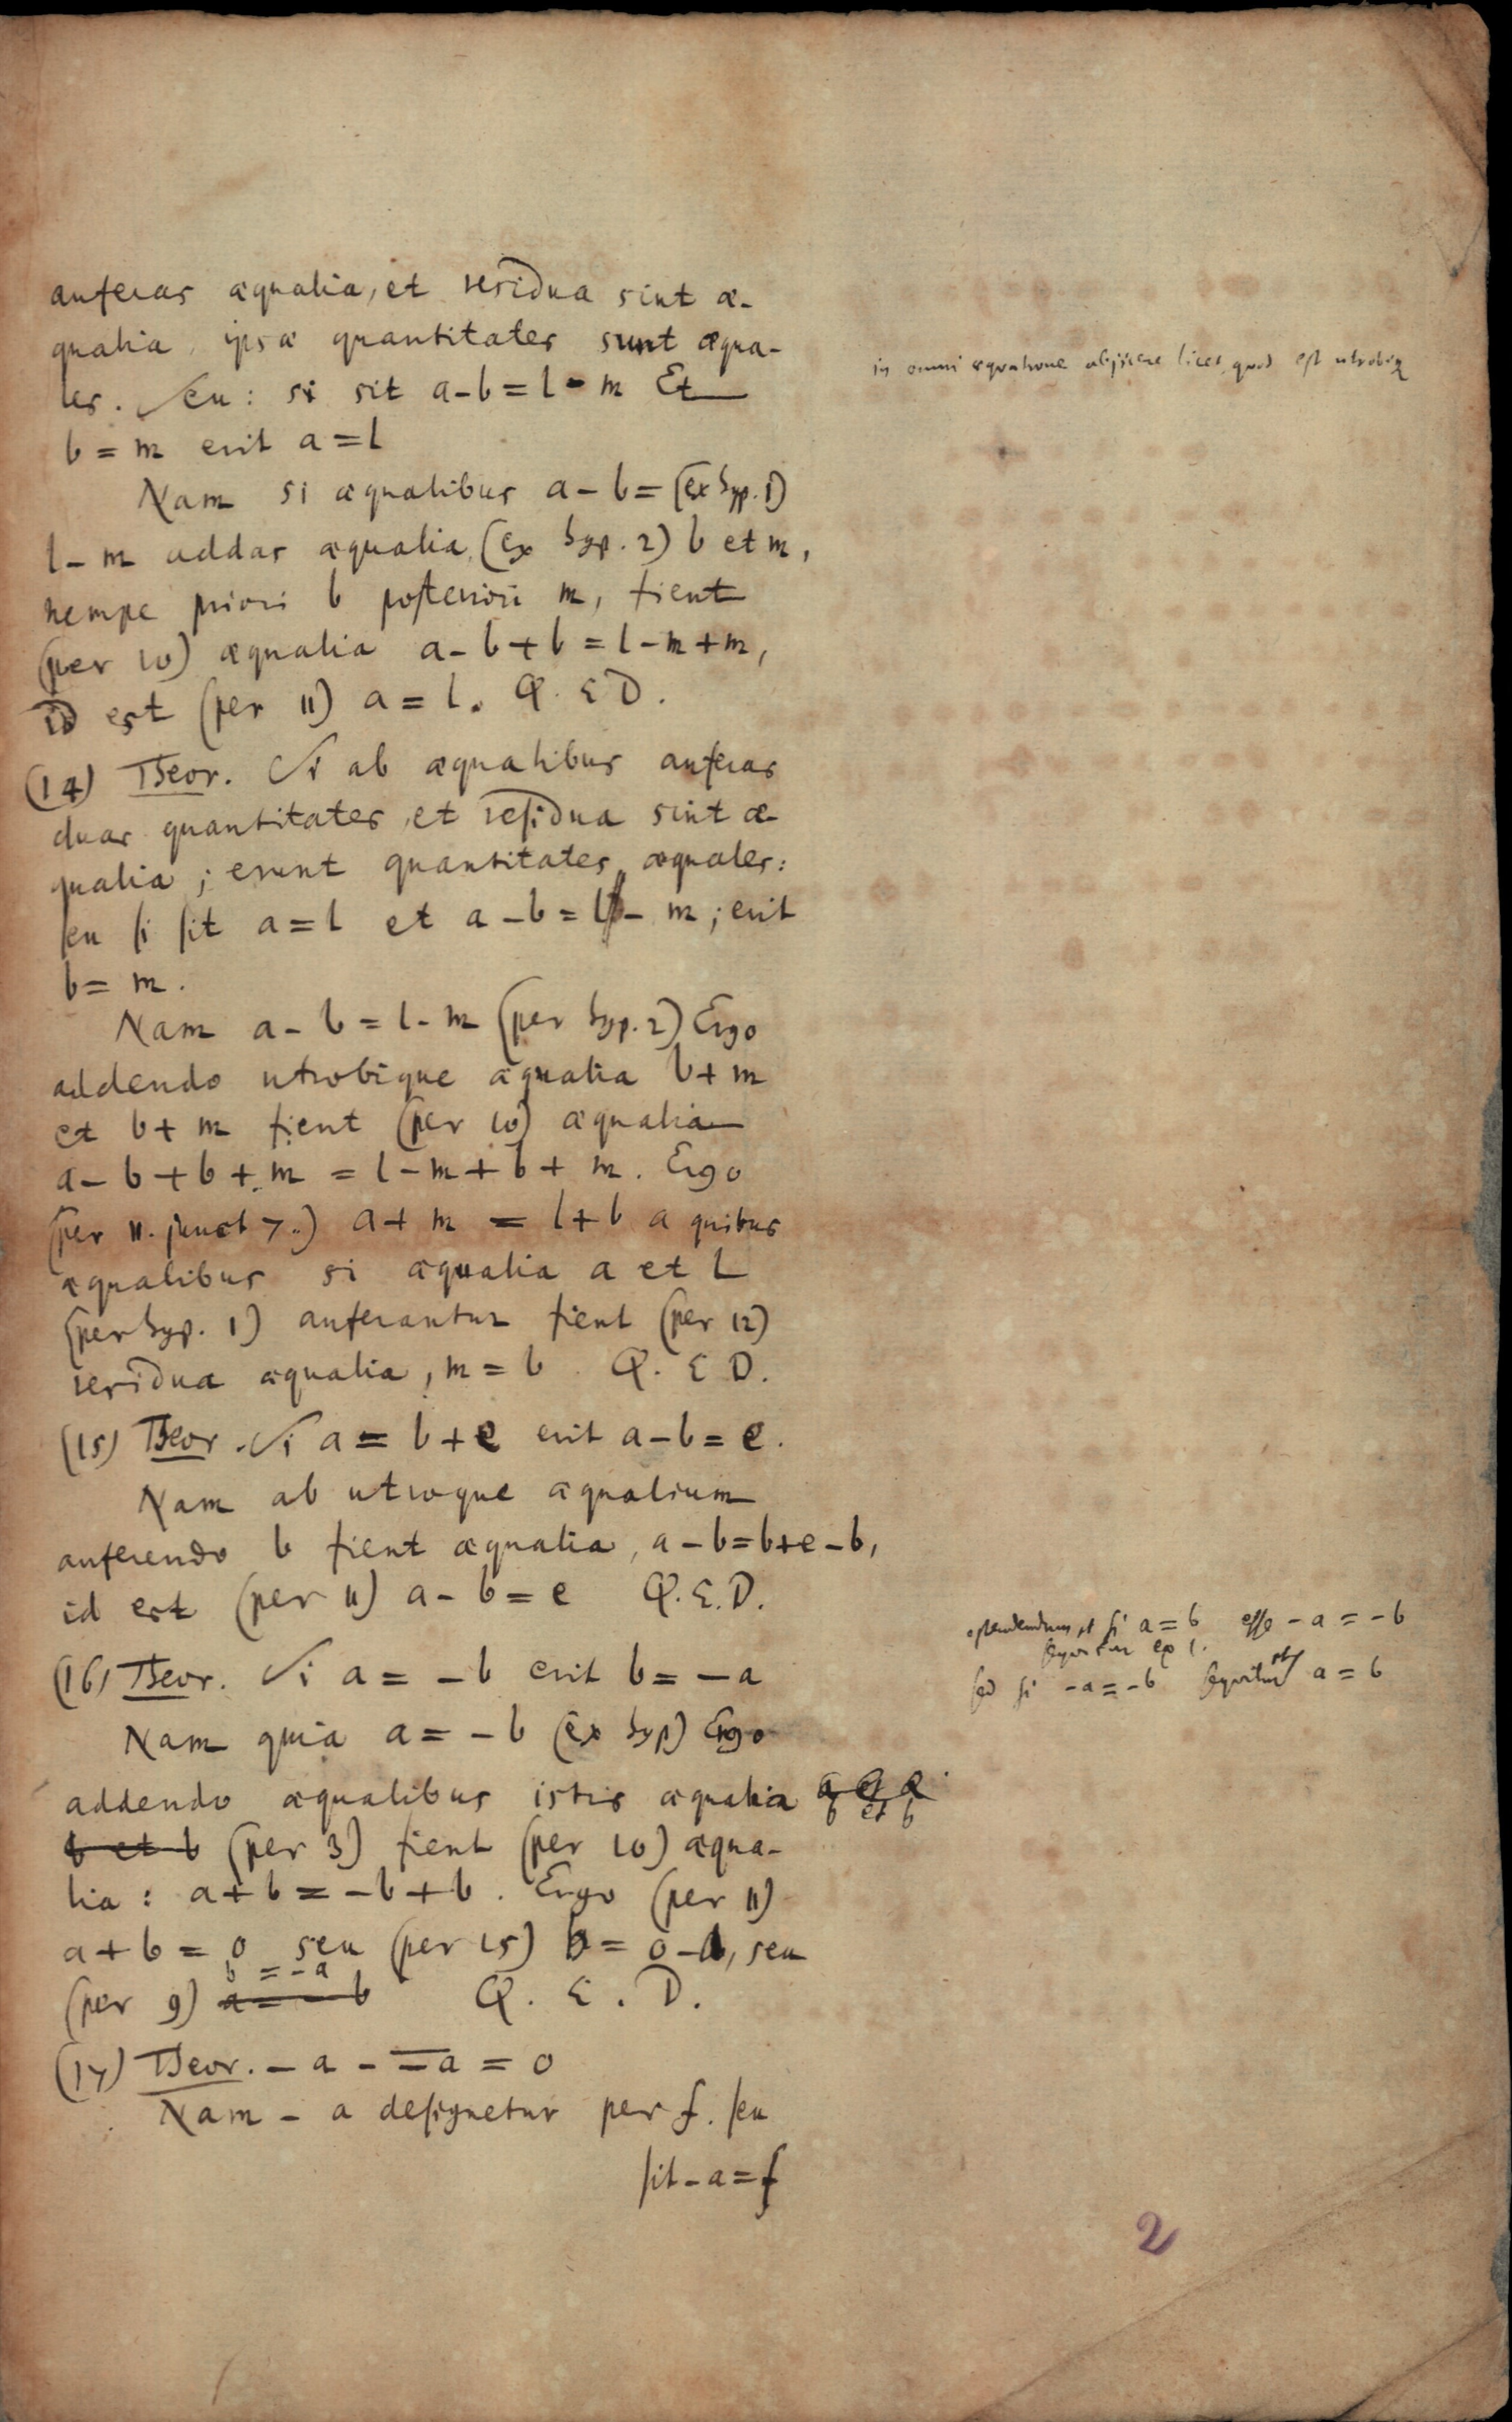 auferas æqualia, et residua sint æ-
qualia, ipsæ quantitates sunt æqua-
les. Seu: si sit a-b=l-m Et
b=m erit a=l
Nam si æqualibus a-b= (ex hyp. 1)
l-m addas æqualia (ex hyp. 2) b et m,
nempe priori b posteriori m, fient
(per 10) æqualia a-b+b=l-m+m,
id est (per 11) a=l. Q. E D.
(14) Theor. Si ab æqualibus auferas
duas quantitates, et residua sint æ-
qualia; erunt quantitates æquales:
seu si sit a=l et a-b=l-m; erit
b=m.
Nam a-b=l-m (per hyp. 2) Ergo
addendo utrobique æqualia b+m
et b+m fient (per 10) æqualia
a-b+b+m=l-m+b+m. Ergo
(per 11. junct 7.) a+m=l+b a quibus
æqualibus si æqualia a et l
(per hyp. 1) auferantur fient (per 12)
residua æqualia, m=b. Q. E D.
(15) Theor. Si a=b+e erit a-b=e.
Nam ab utroque æqualium
auferendo b fient æqualia, a-b=b+e-b,
id est (per 11) a-b=e Q. E. D.
(16) Theor. Si a=-b erit b=-a
Nam quia a=-b (ex hyp) Ergo
addendo æqualibus istis æqualia a et a
b et b
b et b (per 3) fient (per 10) æqua-
lia: a+b=-b+b. Ergo (per 11)
a+b=0 seu (per 15) b=0-a, seu
b=-a
(per 9) a=-b Q. E. D.
(17) Theor. -a- -a=0
Nam -a designetur per f. seu
sit -a=f
in omni æquatione abjicere licet, quod est utrobiq
ostendendum, si a=b esse -a=-b
sequitur ex 1.
sed si -a=-b sequitur a=b
2